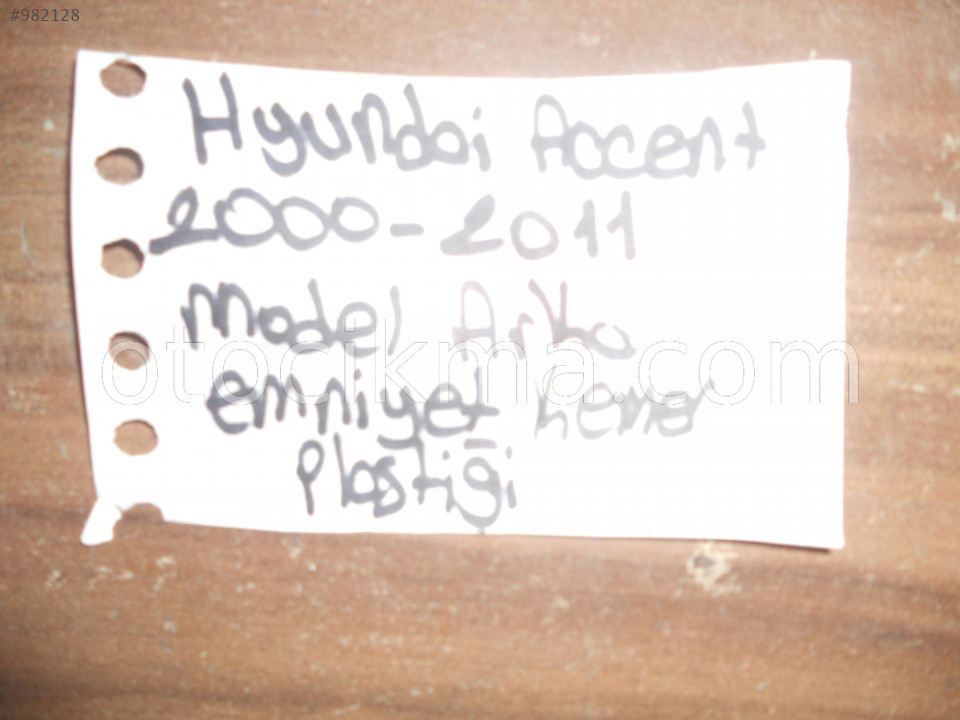 #982128
Hyundai Accent
2000-2011
Model Arka
emniyet kemer
Plastiği
otocikma.com